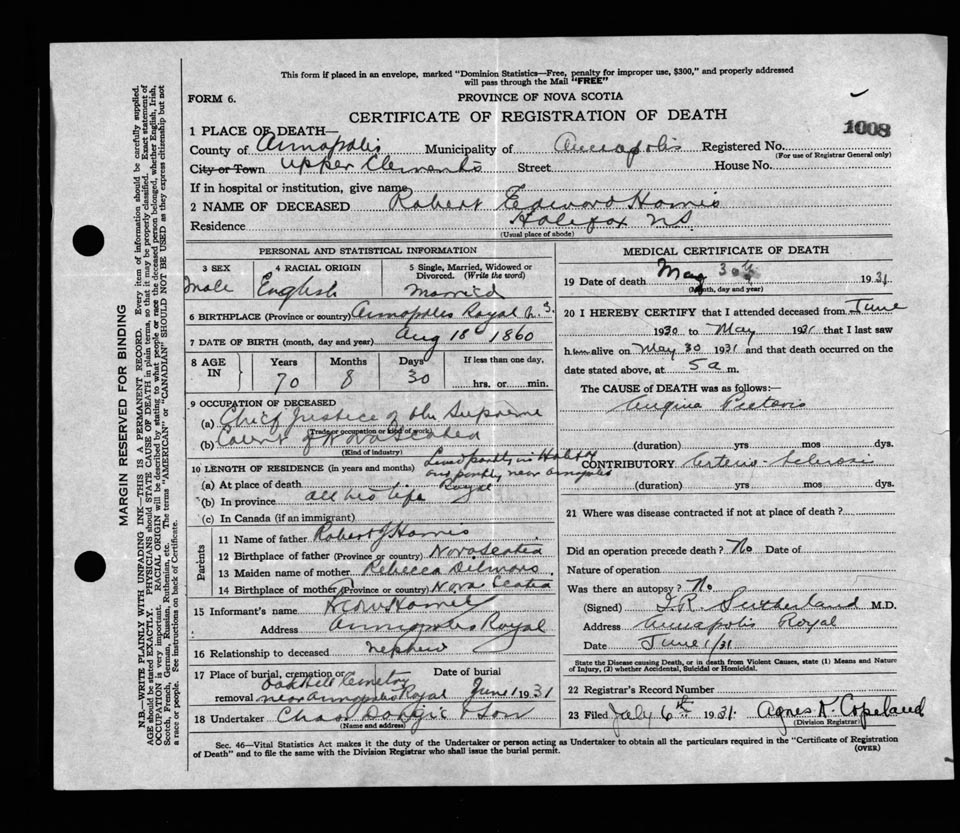 This form if placed in an envelope, marked "Dominion Statistics—Free, penalty for improper use, $300," and properly addressed
will pass through the Mail "FREE"
FORM 6.
PROVINCE OF NOVA SCOTIA
CERTIFICATE OF REGISTRATION OF DEATH
1008
1 PLACE OF DEATH—
County of Annapolis Municipality of Annapolis Registered No.
(For use of Registrar General only)
City or Town Upper Clements Street House No.
If in hospital or institution, give name
2 NAME OF DECEASED Robert Edward Harris
Residence Halifax N.S.
(Usual place of abode)
PERSONAL AND STATISTICAL INFORMATION
3 SEX 4 RACIAL ORIGIN 5 Single, Married, Widowed or
Divorced. (Write the word)
Male English Married
6 BIRTHPLACE (Province or country) Annapolis Royal N.S.
7 DATE OF BIRTH (month, day and year) Aug 18 1860
8 AGE IN Years Months Days If less than one day,
70 8 30 hrs. or min.
9 OCCUPATION OF DECEASED
(a) Chief Justice of the Supreme
(Trade or occupation or kind of work)
(b) Court of Nova Scotia
(Kind of industry)
10 LENGTH OF RESIDENCE (in years and months) Lived partly in Halifax
and partly near Annapolis
(a) At place of death Royal
(b) In province all his life
(c) In Canada (if an immigrant)
Parents
11 Name of father Robert J Harris
12 Birthplace of father (Province or country) Nova Scotia
13 Maiden name of mother Rebecca
14 Birthplace of mother (Province or country) Nova Scotia
15 Informant's name
Address Annapolis Royal
16 Relationship to deceased nephew
17 Place of burial, cremation or Date of burial
Cemetery
removal near Annapolis Royal June 1 1931
18 Undertaker & Son
(Name and address)
MEDICAL CERTIFICATE OF DEATH
19 Date of death May 30 1931
(Month, day and year)
20 I HEREBY CERTIFY that I attended deceased from June
1930 to May 1931 that I last saw
him alive on May 30 1931 and that death occurred on the
date stated above, at 5 a m.
The CAUSE of DEATH was as follows:—
Angina Pectoris
(duration) yrs mos dys.
CONTRIBUTORY Arterio-sclerosis
(duration) yrs mos dys.
21 Where was disease contracted if not at place of death?
Did an operation precede death? No Date of
Nature of operation
Was there an autopsy? No
(Signed) Sutherland M.D.
Address Annapolis Royal
Date June 1/31
State the Disease causing Death, or in death from Violent Causes, state (1) Means and Nature
of Injury, (2) whether Accidental, Suicidal or Homicidal.
22 Registrar's Record Number
23 Filed July 6th 1931. Agnes Copeland
(Division Registrar)
Sec. 46—Vital Statistics Act makes it the duty of the Undertaker or person acting as Undertaker to obtain all the particulars required in the "Certificate of Registration
of Death" and to file the same with the Division Registrar who shall issue the burial permit.
(OVER)
MARGIN RESERVED FOR BINDING
N.B.—WRITE PLAINLY WITH UNFADING INK—THIS IS A PERMANENT RECORD. Every item of information should be carefully supplied.
AGE should be stated EXACTLY. PHYSICIANS should STATE CAUSE OF DEATH in plain terms, so that it may be properly classified. Exact statement of
OCCUPATION is very important. RACIAL ORIGIN will be described by stating to what people or race the deceased person belonged, whether English, Irish,
Scotch, French, German, Russian, Ruthenian, etc. The terms "AMERICAN" or "CANADIAN" SHOULD NOT BE USED as they express citizenship but not
a race or people. See instructions on back of Certificate.